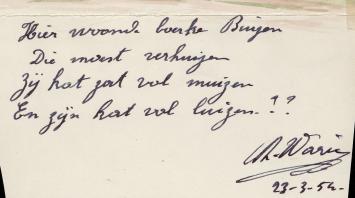 Hier woonde boerke Buijen
Die moest verhuizen
Zij hat zat vol muizen
En zijn hat vol luizen.??
23-3-54.